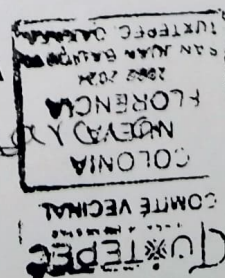 TUXTEPEC
COMITÉ VECINAL
COLONIA
NUEVA
FLORENCIA
SAN JUAN BAUTISTA
TUXTEPEC, OAXACA